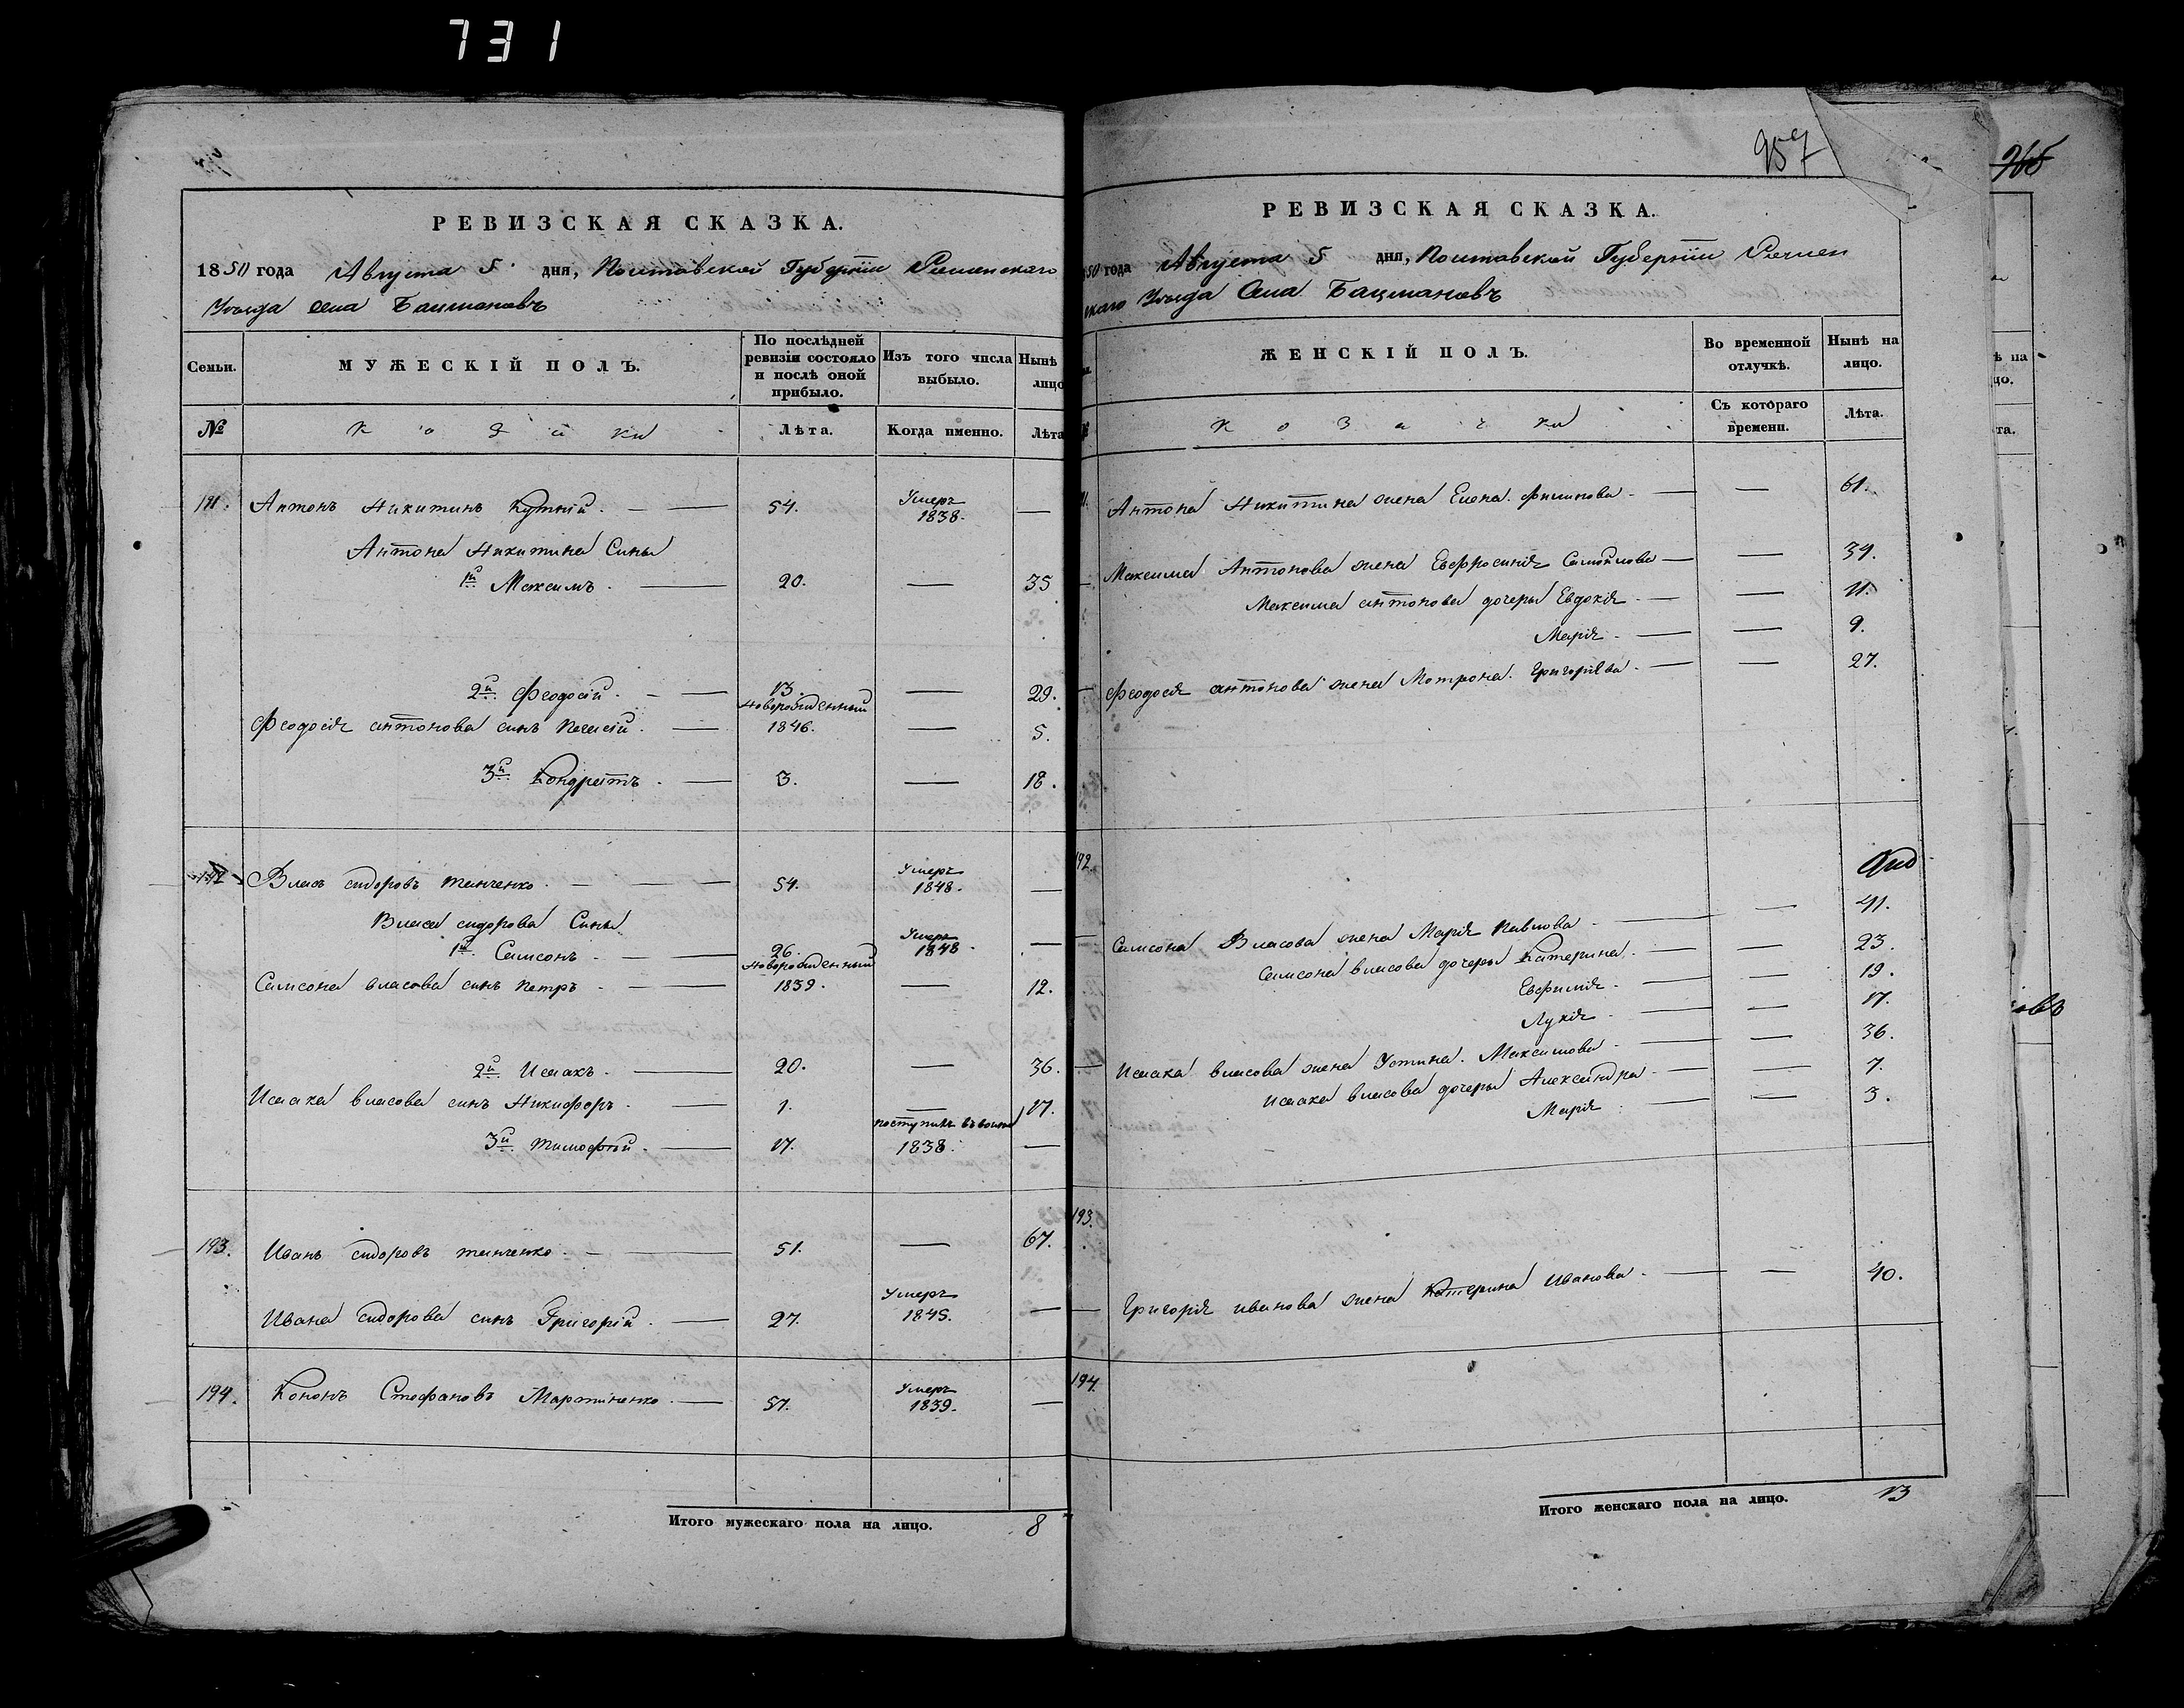 731
РЕВИЗСКАЯ СКАЗКА.
1850 года Августа 5 дня, Полтавской Губерніи Роменскаго
Уѣзда села Бацмановъ
Семьи.
МУЖЕСКІЙ ПОЛЪ.
По послѣдней ревизіи состояло и послѣ оной прибыло.
Изъ того числа выбыло.
Нынѣ лицо
№
Козаки
Лѣта.
Когда именно.
Лѣта
191. Антонъ Никитинъ Кутній. — 54. Умеръ 1838. —
Антона Никитина Сины
1й Максимъ. — 20. — 35
2й Феодосій. — 13. — 29.
Новорожденный
Феодосія антонова синъ — 1846. — 5.
3й Кондратъ. — 3. — 18.
192 Власъ сидоровъ — 54. Умеръ 1848. —
Власа сидорова Сины
1й Самсонъ. — 26. Умеръ 1848. —
Новорожденный
Самсона власова синъ Петръ — 1839. — 12.
2й Исаакъ. — 20. — 36.
Исаака власова синъ Никифоръ. — 1. — 17.
поступилъ въ
3й Тимофѣй. — 17. 1838. —
193. Иванъ сидоровъ — 51. — 67.
Ивана сидорова синъ Григорій. — 27. Умеръ 1845. —
194. Кононъ Стефановъ Мартиненко. — 57. Умеръ 1839. —
Итого мужескаго пола на лицо. 8
957
РЕВИЗСКАЯ СКАЗКА.
50 года Августа 5 дня, Полтавской Губерніи Ромен
скаго Уѣзда Села Бацмановъ
ЖЕНСКІЙ ПОЛЪ.
Во временной отлучкѣ.
Нынѣ на лицо.
Козачки
Съ котораго времени.
Лѣта.
Антона Никитина жена Елена Филипова. — — 61.
Максима Антонова жена Евфросинія Самойлова — — 34.
Максима антонова дочеры Евдокія. — — 11.
Марія. — — 9.
Феодосія антонова жена Мотрона Григоріева. — — 27.
192.
Самсона Власова жена Марія Павлова — — 41.
Самсона власова дочеры Катерина. — — 23.
Евфимія. — — 19.
Лукія — — 17.
Исаака власова жена Устина Максимова. — — 36.
Исаака власова дочеры Александра. — — 7.
Марія — — 3.
193.
Григорія иванова жена Катерина Иванова. — — 40.
194.
Итого женскаго пола на лицо. 13